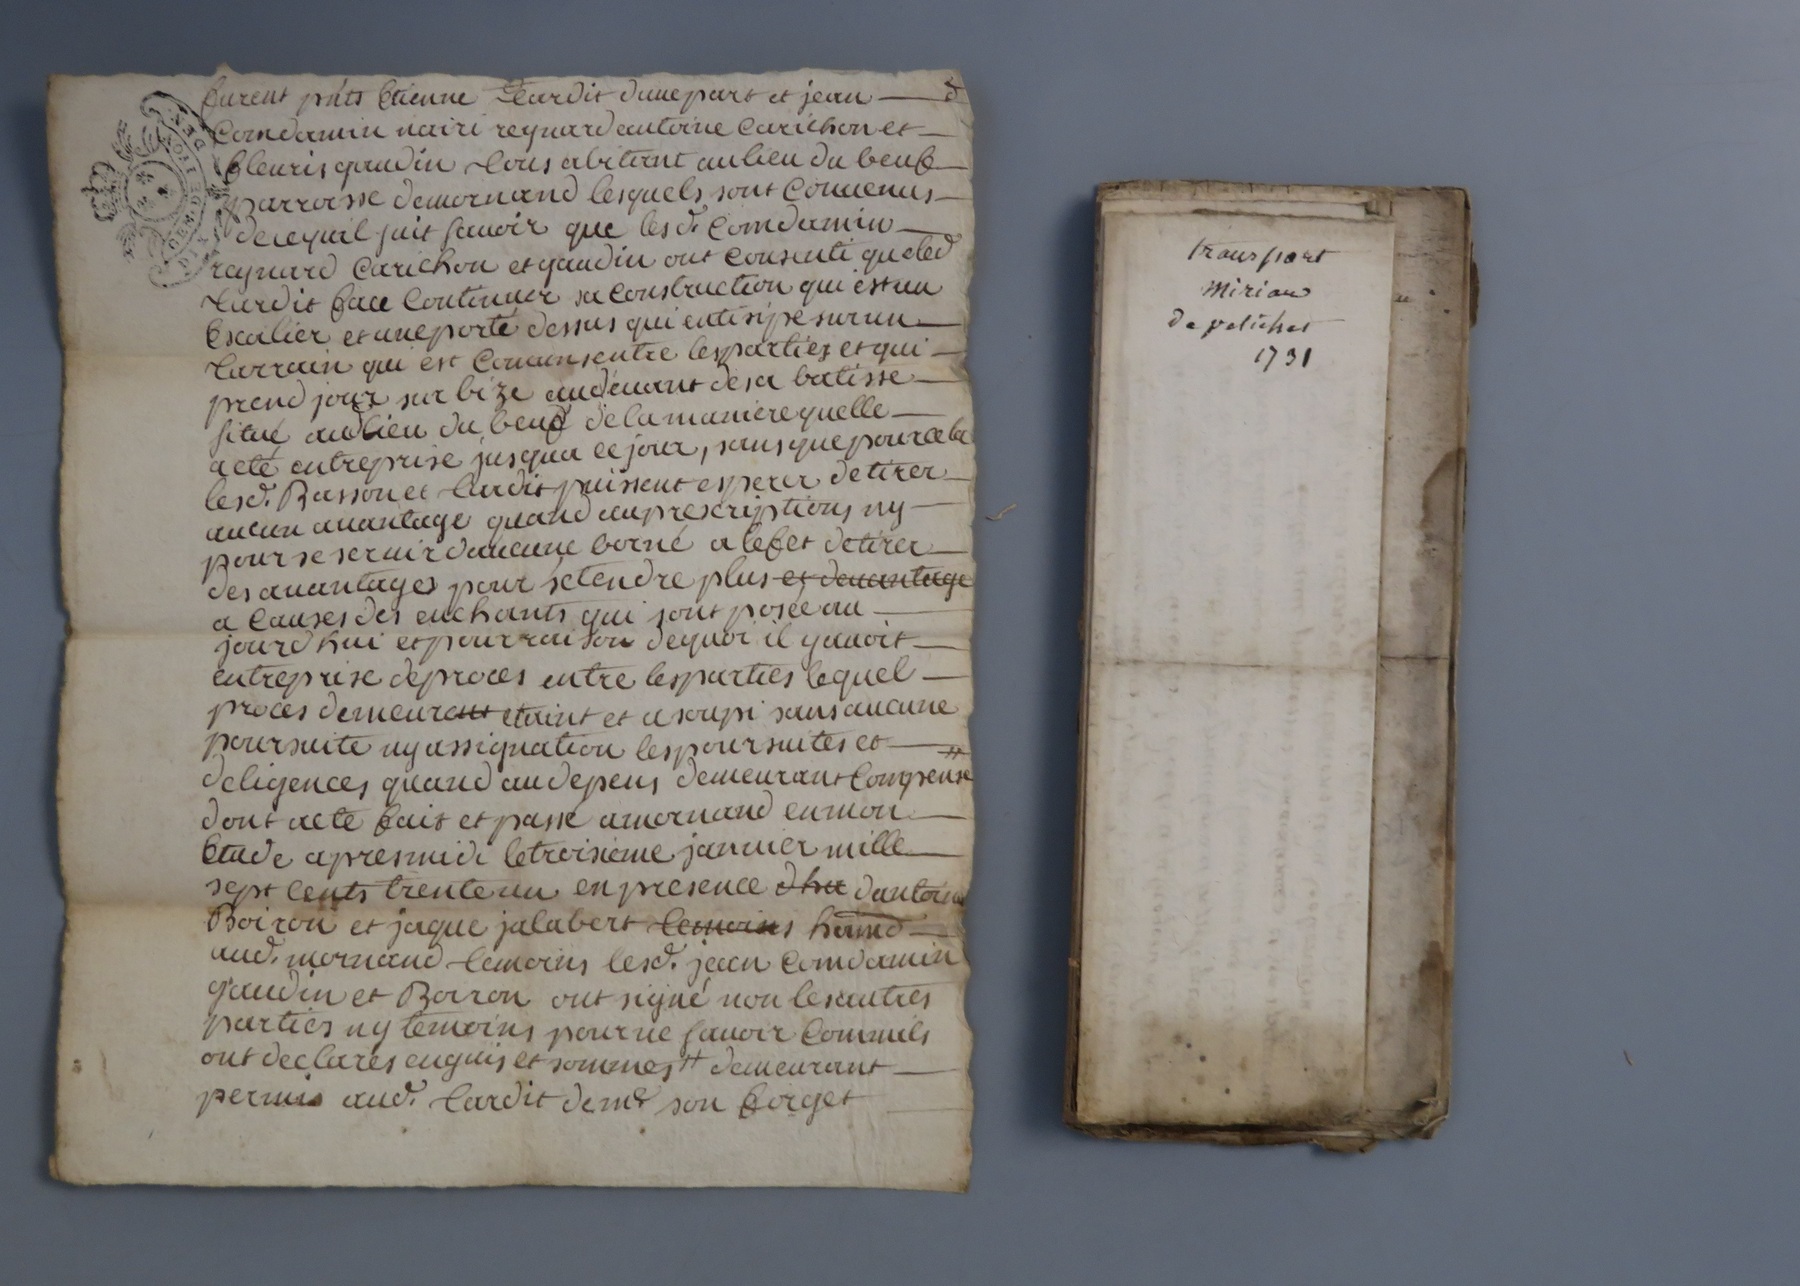 furent pnts Etienne Tardit dune part et jean
Comdamin nairi reynard antoine Carichon et
fleuris gaudin tous abitant au lieu du beuf
parroisse demornand lesquels sont Convenus
de ce quil suit savoir que les d. Comdamin
reynard Carichon et gaudin ont Consenti que led
tardit face Continuer sa Construction qui est un
Escalier et une porte dessus qui entisipe sur un
tarrain qui est Comun entre les parties et qui
prend jour sur bize audevant de sa batisse
situé au lieu du beuf de la maniere quelle
a eté entreprise jusqua ce jour, sans que pour cela
les d. Basson et tardit puissent esperer de tirer
aucun avantage quand au prescriptions ny
pour se servir daucune borné a lefet de tirer
des avantages pour setendre plus et davantage
a Causes des enchants qui sont posée au
jourdhui et pour raison de quoi il y avoit
entreprise de proces entre les parties lequel
proces demeurant etaint et asoupi sans aucune
poursuite ny assignation les poursuites et
deligences quand au depens demeurant Compensé
dont acte fait et passé a mornand en mon
Etude apres midi le troisieme janvier mille
sept Cents trente un en presence dantoine
Boiron et jaque jalabert temoins
aud. mornand temoins les d. jean Comdamin
gaudin et Boiron ont signé non les autres
parties ny temoins pour ne savoir Comme ils
ont declarés enquis et sommes demeurant
permis aud. tardit son forget
transport
miriau
de petichet
1731